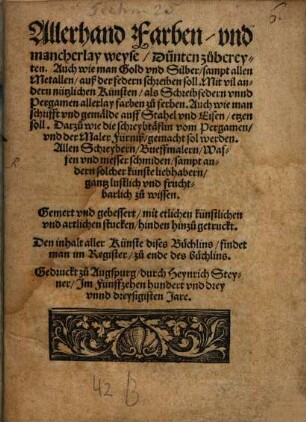 Allerhand Farben / vnd
mancherlay weyse / Dünten zůberey-
ten. Auch wie man Gold vnd Silber / sampt allen
Metallen / auß der federn schreiben soll. Mit vil an
dern nützlichen Künsten / als Schreibfedern vnnd
Pergamen allerlay farben zů ferben. Auch wie man
schrifft vnd gemälde auff Stahel vnd Eisen / etzen
soll. Darzů wie die schreybtäflin vom Pergamen /
vnd der Maler Fürniß / gemacht sol werden.
Allen Schreybern / Brieffmalern / Waf-
fen vnd messer schmiden / sampt an-
dern solcher künste liebhabern /
gantz lustlich vnd frucht-
barlich zů wissen.
Gemert vnd gebessert / mit etlichen künstlichen
vnd artlichen stucken / hinden hinzů getruckt.
Den inhalt aller Künste dises Büchlins / findet
man im Register / zů ende des büchlins.
Gedruckt zů Augspurg / durch Heynrich Stey-
ner / Im Fünffzehen hundert vnd drey
vnnd dreysigisten Jare.
42